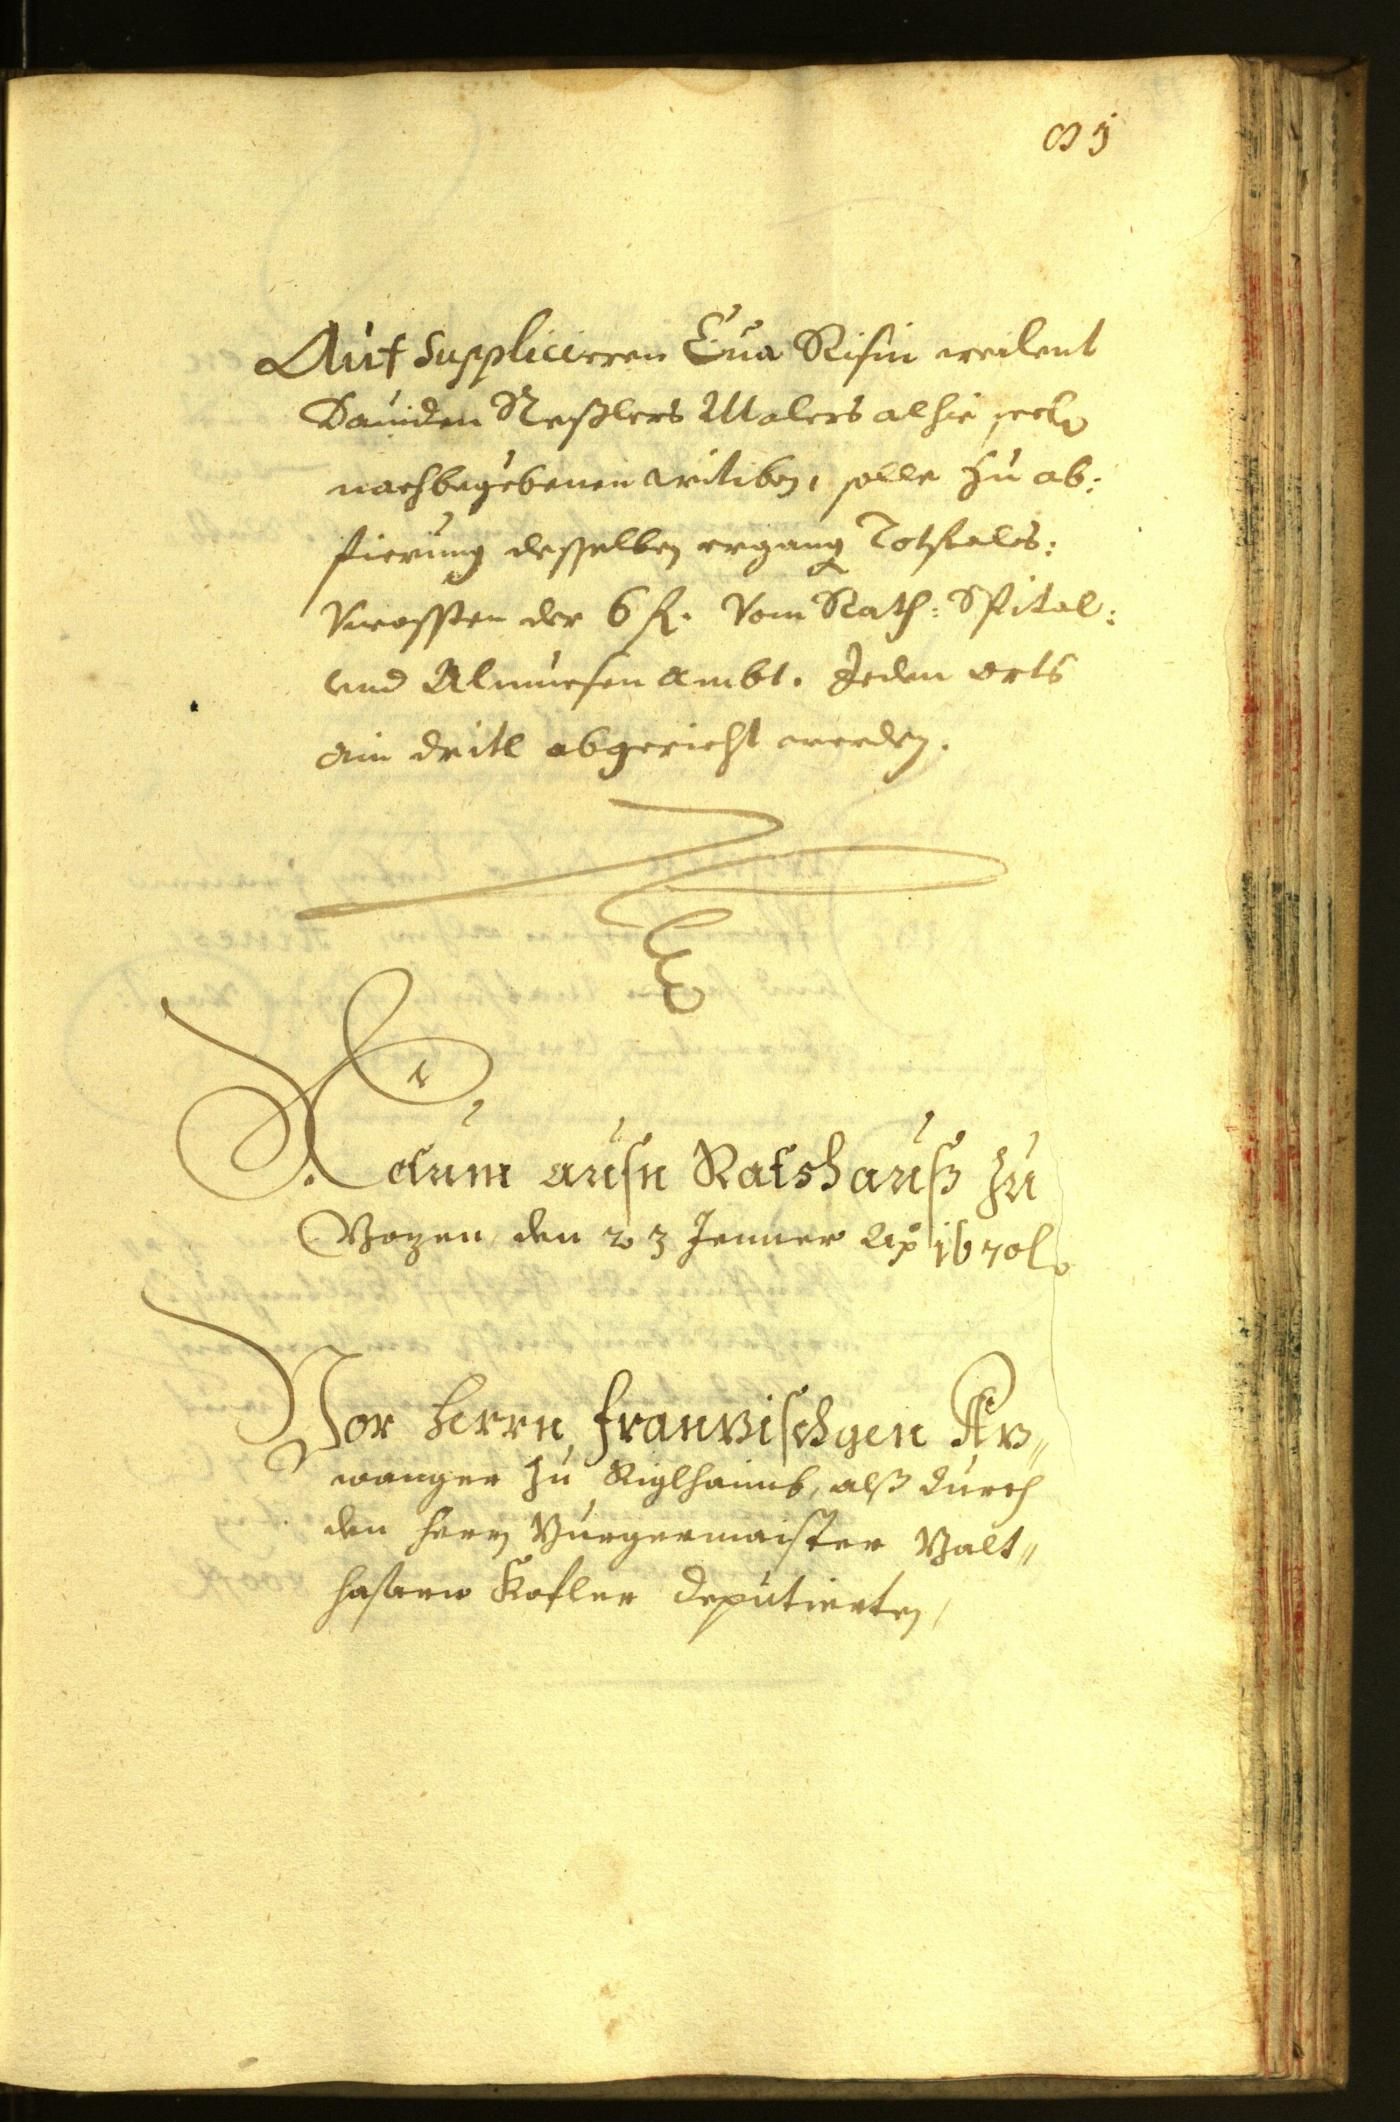 Auf Suppliciren Eua Risin weilent
Dauiden Neßlers Malers alhie seel
nachbegebenen witiben, solle zu ab:
stierung desselben ergang Todtfales:
Vncossten der 6 fl. Vom Rath: Spital:
vnd Almuesen Ambt. Jeden orts
ain dritl abgericht werden.
Actum aufn Ratshauß zu
Bozen den 23 Jenner Ao 1670
Vor herrn Franzischgen
wanger zu Riglhaimb, alß durch
den herrn Burgermaister Balt„
hasarn Kofler deputierten,